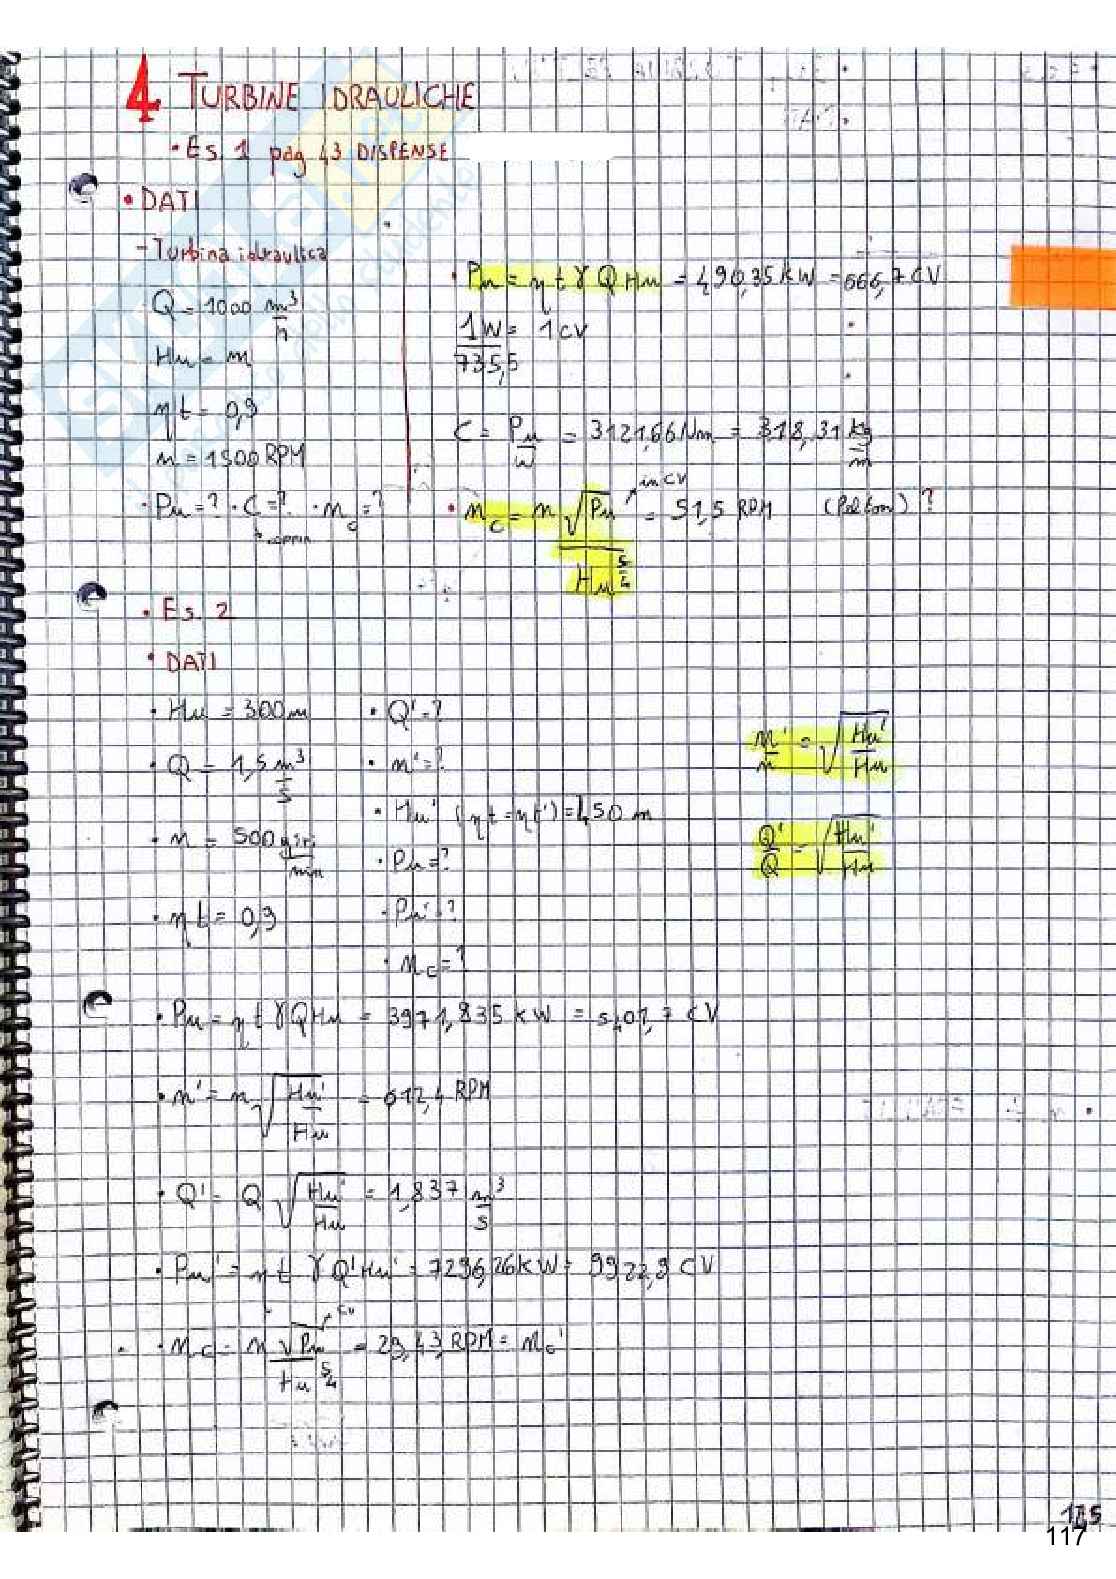 4 TURBINE IDRAULICHE
• Es. 1 pag 43 DISPENSE
• DATI
- Turbina idraulica
Q = 1000 m³/h
Hu = m
ηt = 0,9
n = 1500 RPM
• Pu = ? • C = ? • nc = ?
• Pu = ηt γ Q Hu = 490,35 kW = 666,7 CV
1W/735,5 = 1 CV
C = Pu/ω = 3121,66 Nm = 318,31 kg/m
in CV
• nc = n √Pu / Hu^5/4 = 51,5 RPM (Pelton) ?
• Es. 2
• DATI
• Hu = 300 m
• Q = 1,5 m³/s
• n = 500 giri/min
• ηt = 0,9
• Q' = ?
• n' = ?
• Hu' (ηt = ηt') = 450 m
• Pu = ?
• Pu' = ?
• nc = ?
n'/n = √Hu'/Hu
Q'/Q = √Hu'/Hu
• Pu = ηt γ Q Hu = 3971,835 kW = 5401,7 CV
• n' = n √Hu'/Hu = 612,4 RPM
• Q' = Q √Hu'/Hu = 1,837 m³/s
• Pu' = ηt γ Q' Hu' = 7296,26 kW = 9922,9 CV
CV
• nc = n √Pu / Hu^5/4 = 29,43 RPM = nc'
117